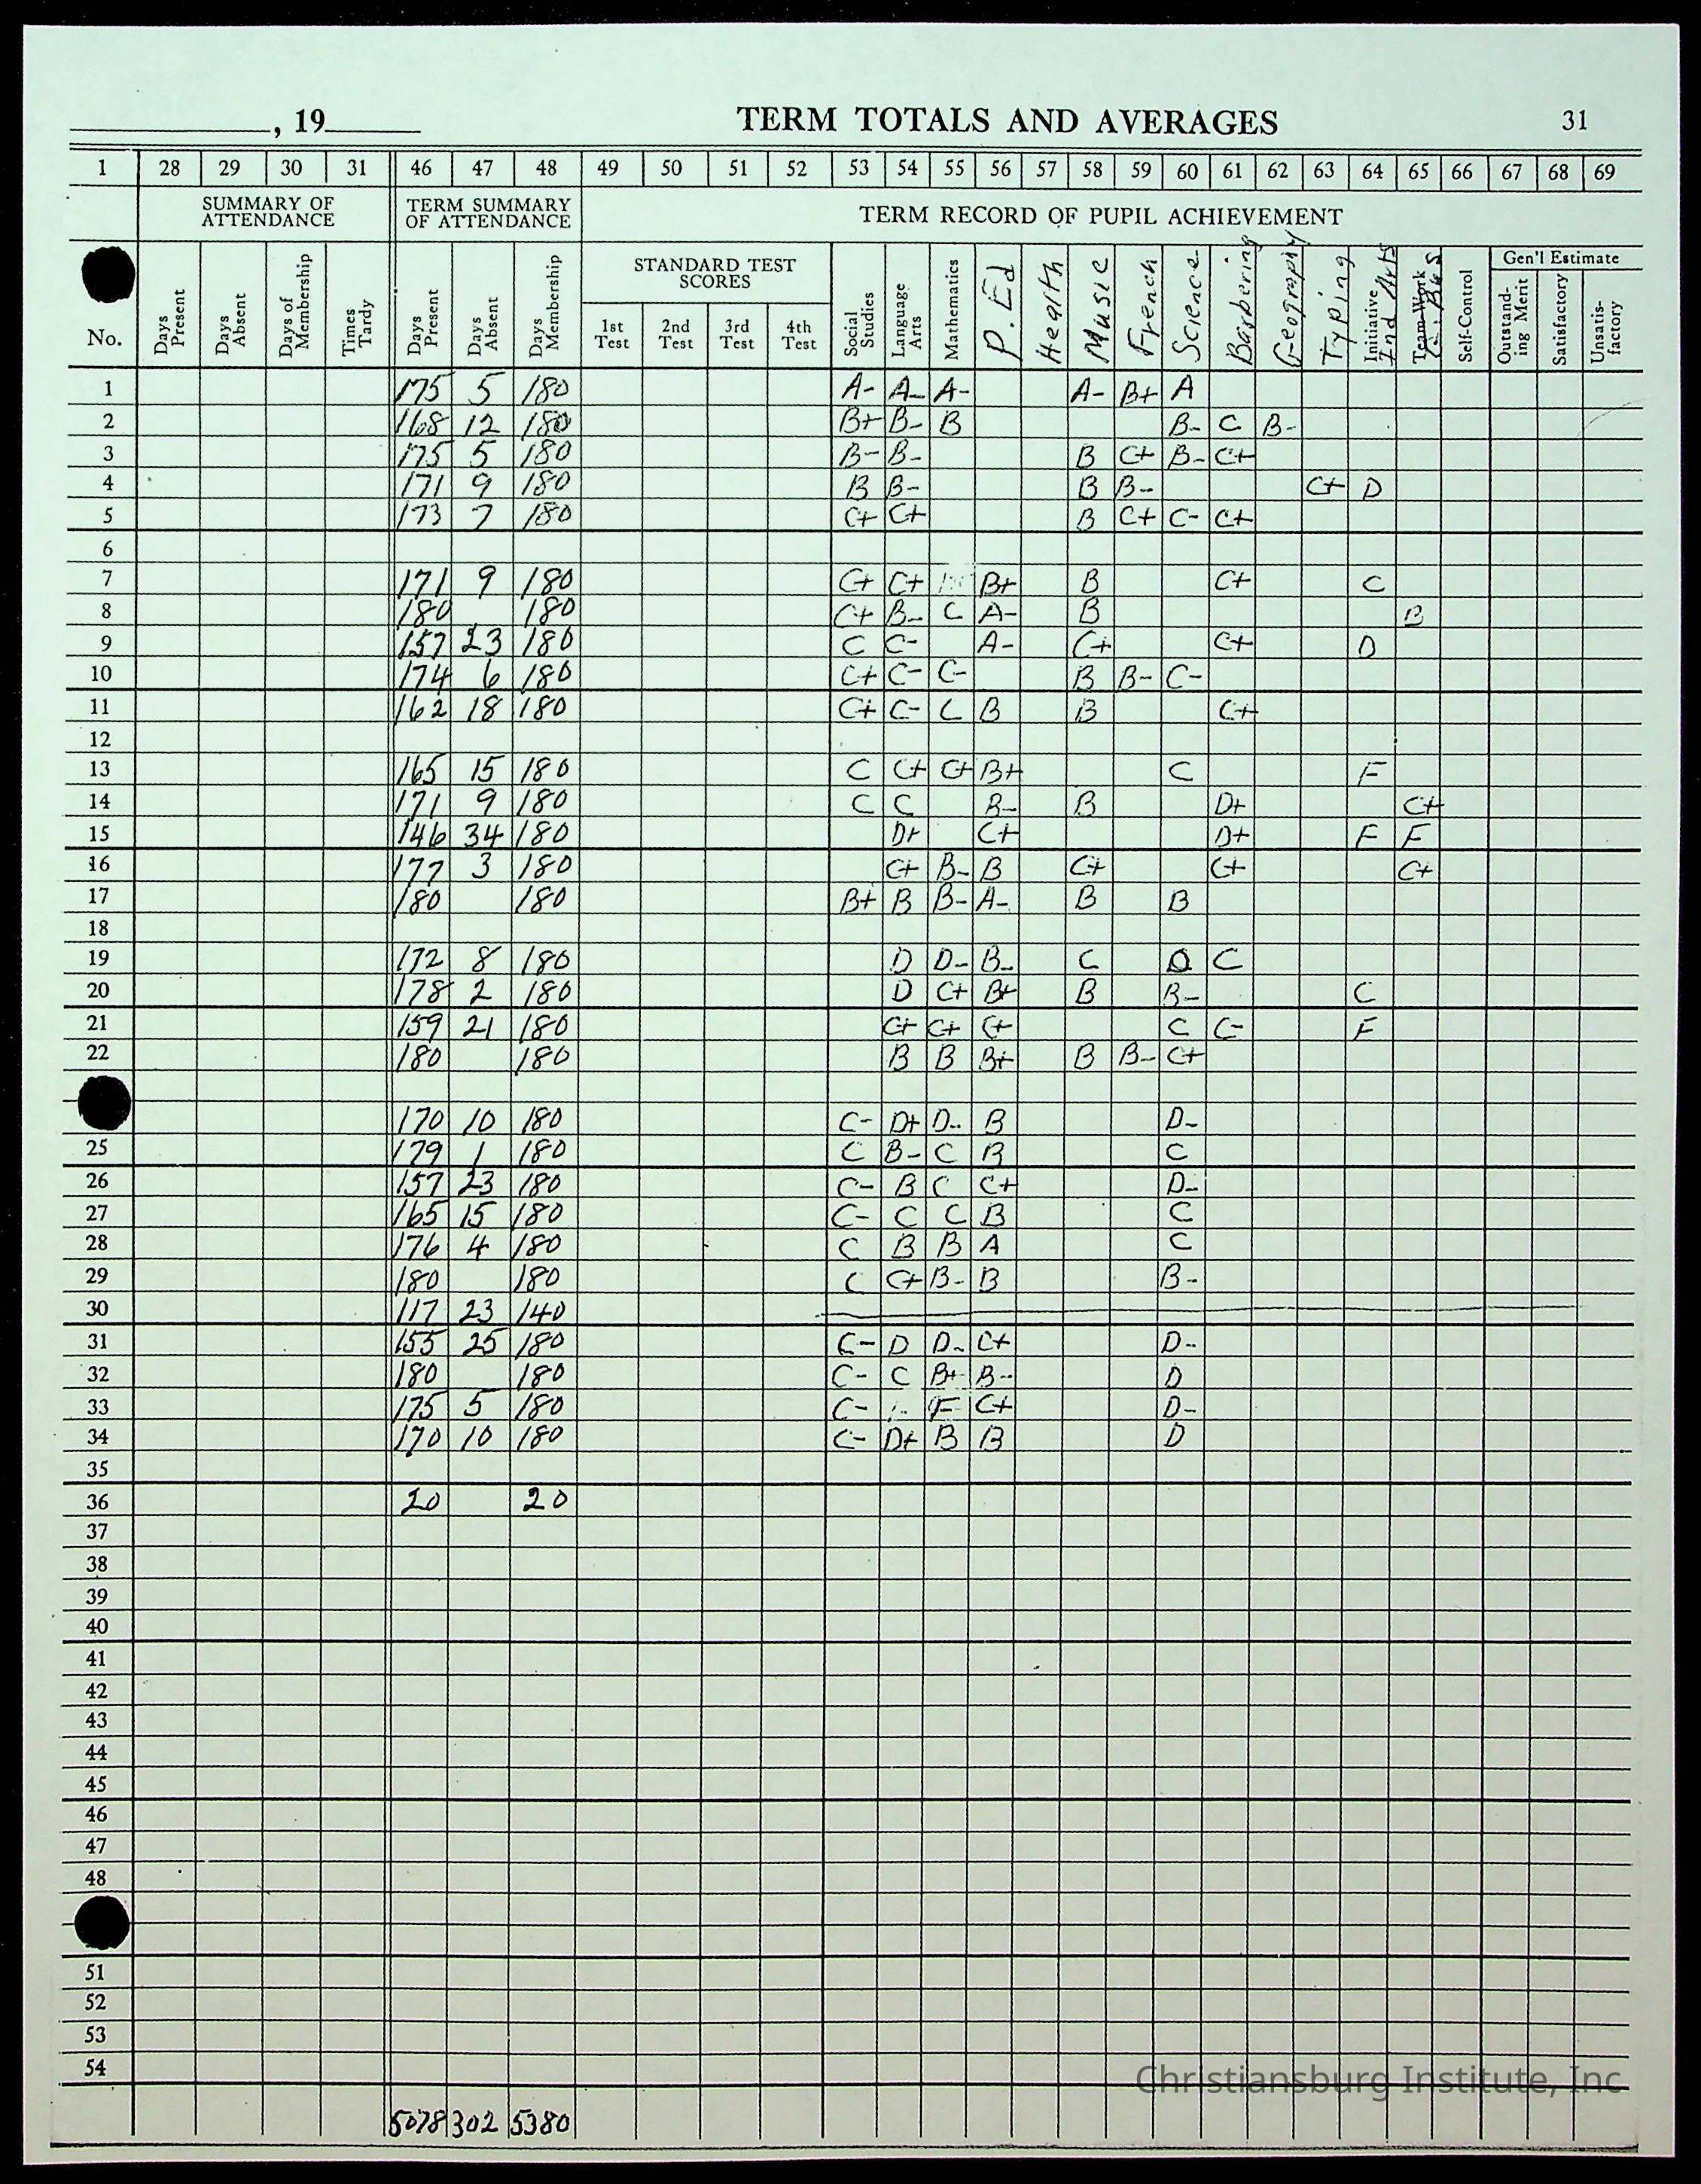 , 19 TERM TOTALS AND AVERAGES 31
1 28 29 30 31 46 47 48 49 50 51 52 53 54 55 56 57 58 59 60 61 62 63 64 65 66 67 68 69
SUMMARY OF ATTENDANCE TERM SUMMARY OF ATTENDANCE TERM RECORD OF PUPIL ACHIEVEMENT
STANDARD TEST SCORES Gen'l Estimate
No. Days Present Days Absent Days of Membership Times Tardy Days Present Days Absent Days Membership 1st Test 2nd Test 3rd Test 4th Test Social Studies Language Arts Mathematics P.Ed Health Music French Science Barbering Geography Typing Initiative Ind Arts Team-Work Bus Self-Control Outstand-ing Merit Satisfactory Unsatis-factory
1 175 5 180 A- A- A- A- B+ A
2 168 12 180 B+ B- B B- C B-
3 175 5 180 B- B- B C+ B- C+
4 171 9 180 B B- B B- C+ D
5 173 7 180 C+ C+ B C+ C- C+
6
7 171 9 180 C+ C+ B+ B C+ C
8 180 180 C+ B- C A- B B
9 157 23 180 C C- A- C+ C+ D
10 174 6 180 C+ C- C- B B- C-
11 162 18 180 C+ C- C B B C+
12
13 165 15 180 C C+ C+ B+ C F
14 171 9 180 C C B- B D+ C+
15 146 34 180 D+ C+ D+ F F
16 177 3 180 C+ B- B C+ C+ C+
17 180 180 B+ B B- A- B B
18
19 172 8 180 D D- B- C D C
20 178 2 180 D C+ B+ B B- C
21 159 21 180 C+ C+ C+ C C- F
22 180 180 B B B+ B B- C+
170 10 180 C- D+ D- B D-
25 179 1 180 C B- C B C
26 157 23 180 C- B C C+ D-
27 165 15 180 C- C C B C
28 176 4 180 C B B A C
29 180 180 C C+ B- B B-
30 117 23 140
31 155 25 180 C- D D- C+ D-
32 180 180 C- C B+ B- D
33 175 5 180 C- F C+ D-
34 170 10 180 C- D+ B B D
35
36 20 20
37
38
39
40
41
42
43
44
45
46
47
48
51
52
53
54
Christiansburg Institute, Inc
5078 302 5380